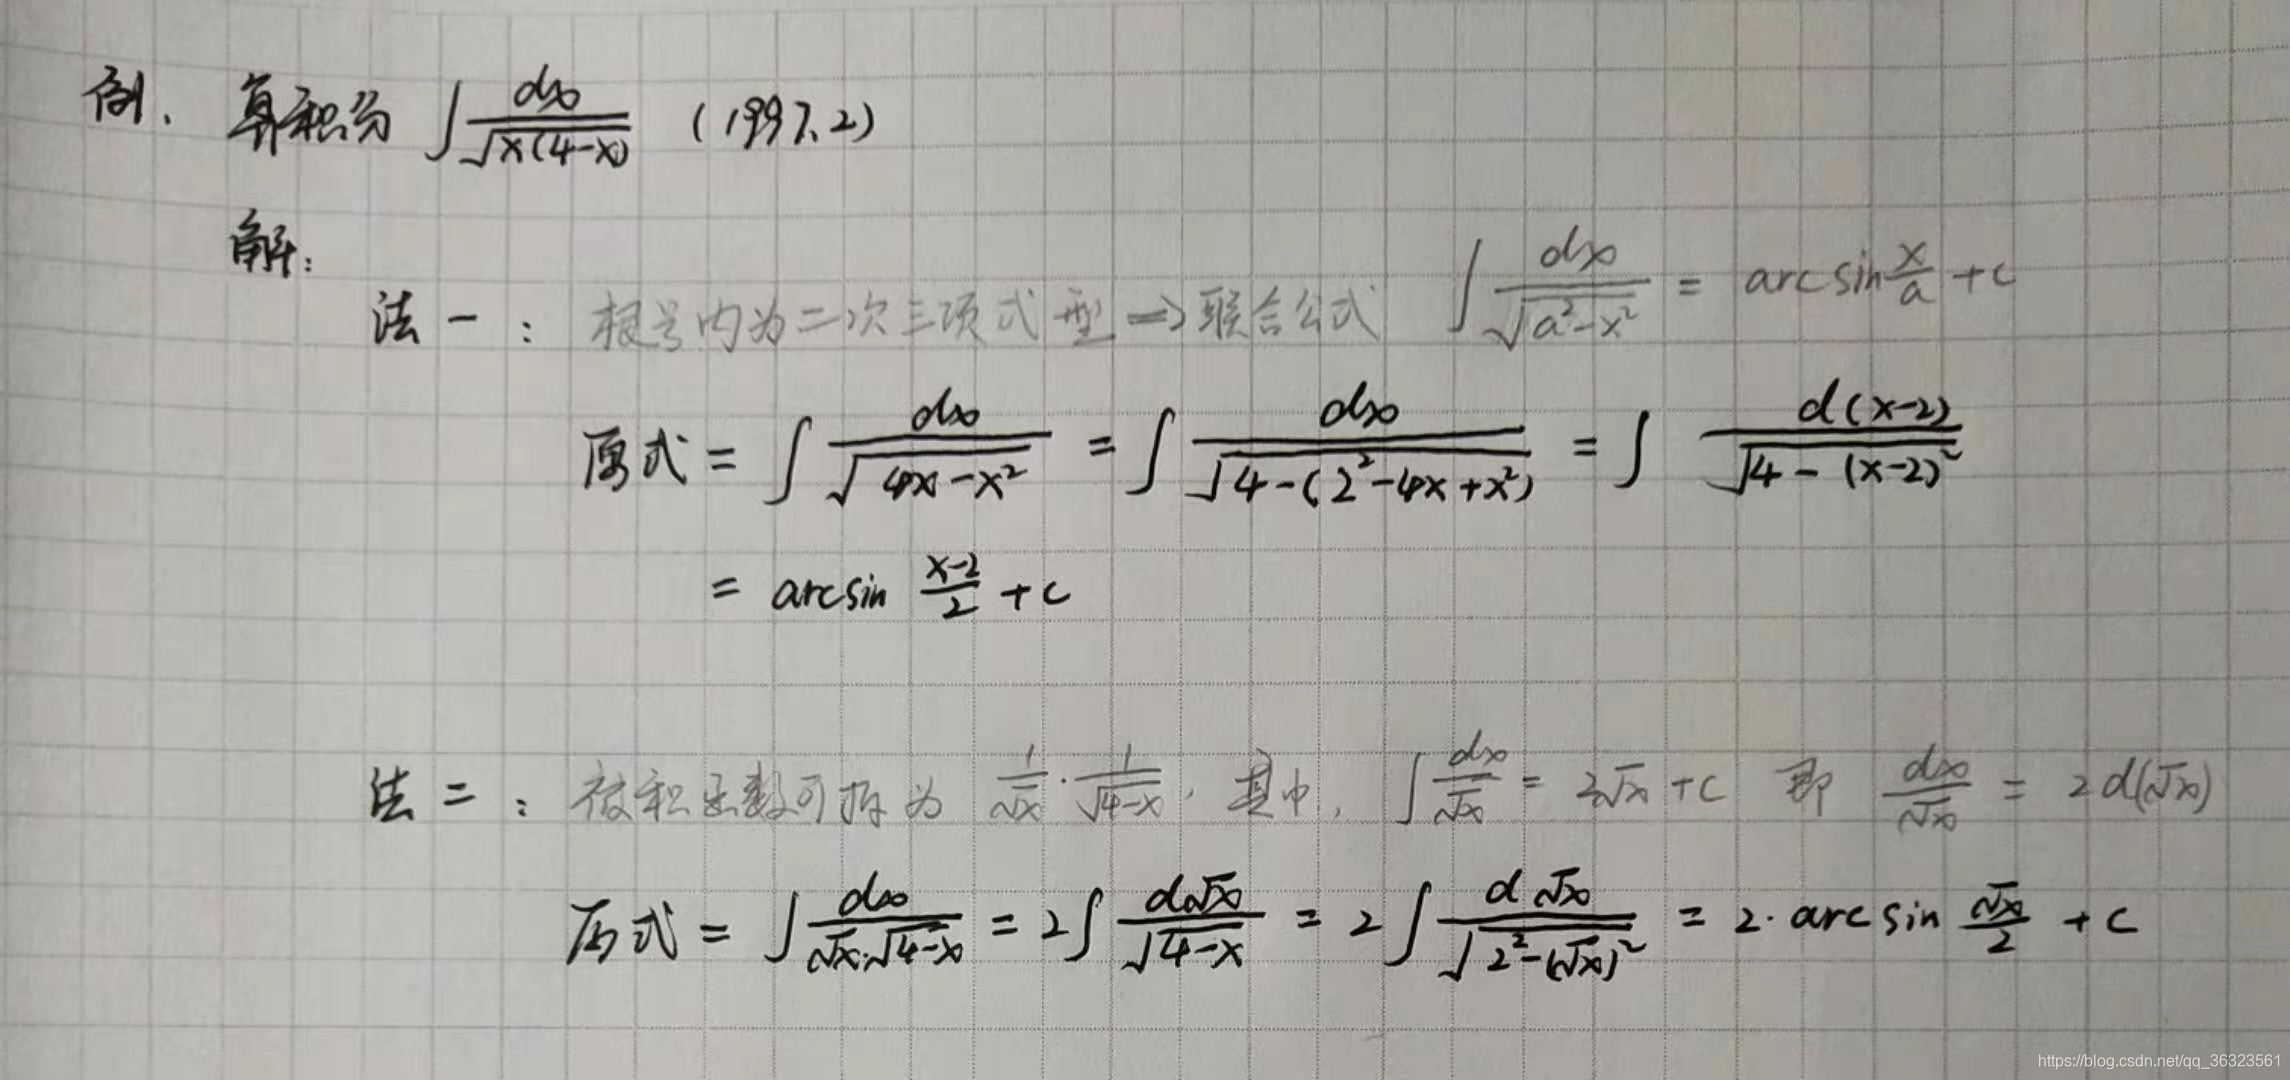 例. 算积分 ∫ dx/√(x(4-x)) (1997.2)
解:
法一: 根号内为二次三项式型 => 联合公式 ∫ dx/√(a²-x²) = arcsin x/a + c
原式 = ∫ dx/√(4x-x²) = ∫ dx/√(4-(2²-4x+x²)) = ∫ d(x-2)/√(4-(x-2)²)
= arcsin (x-2)/2 + c
法二: 被积函数可拆为 1/√x · 1/√(4-x), 其中, ∫ dx/√x = 2√x + c 即 dx/√x = 2d(√x)
原式 = ∫ dx/(√x·√(4-x)) = 2∫ d√x/√(4-x) = 2∫ d√x/√(2²-(√x)²) = 2·arcsin √x/2 + c
https://blog.csdn.net/qq_36323561